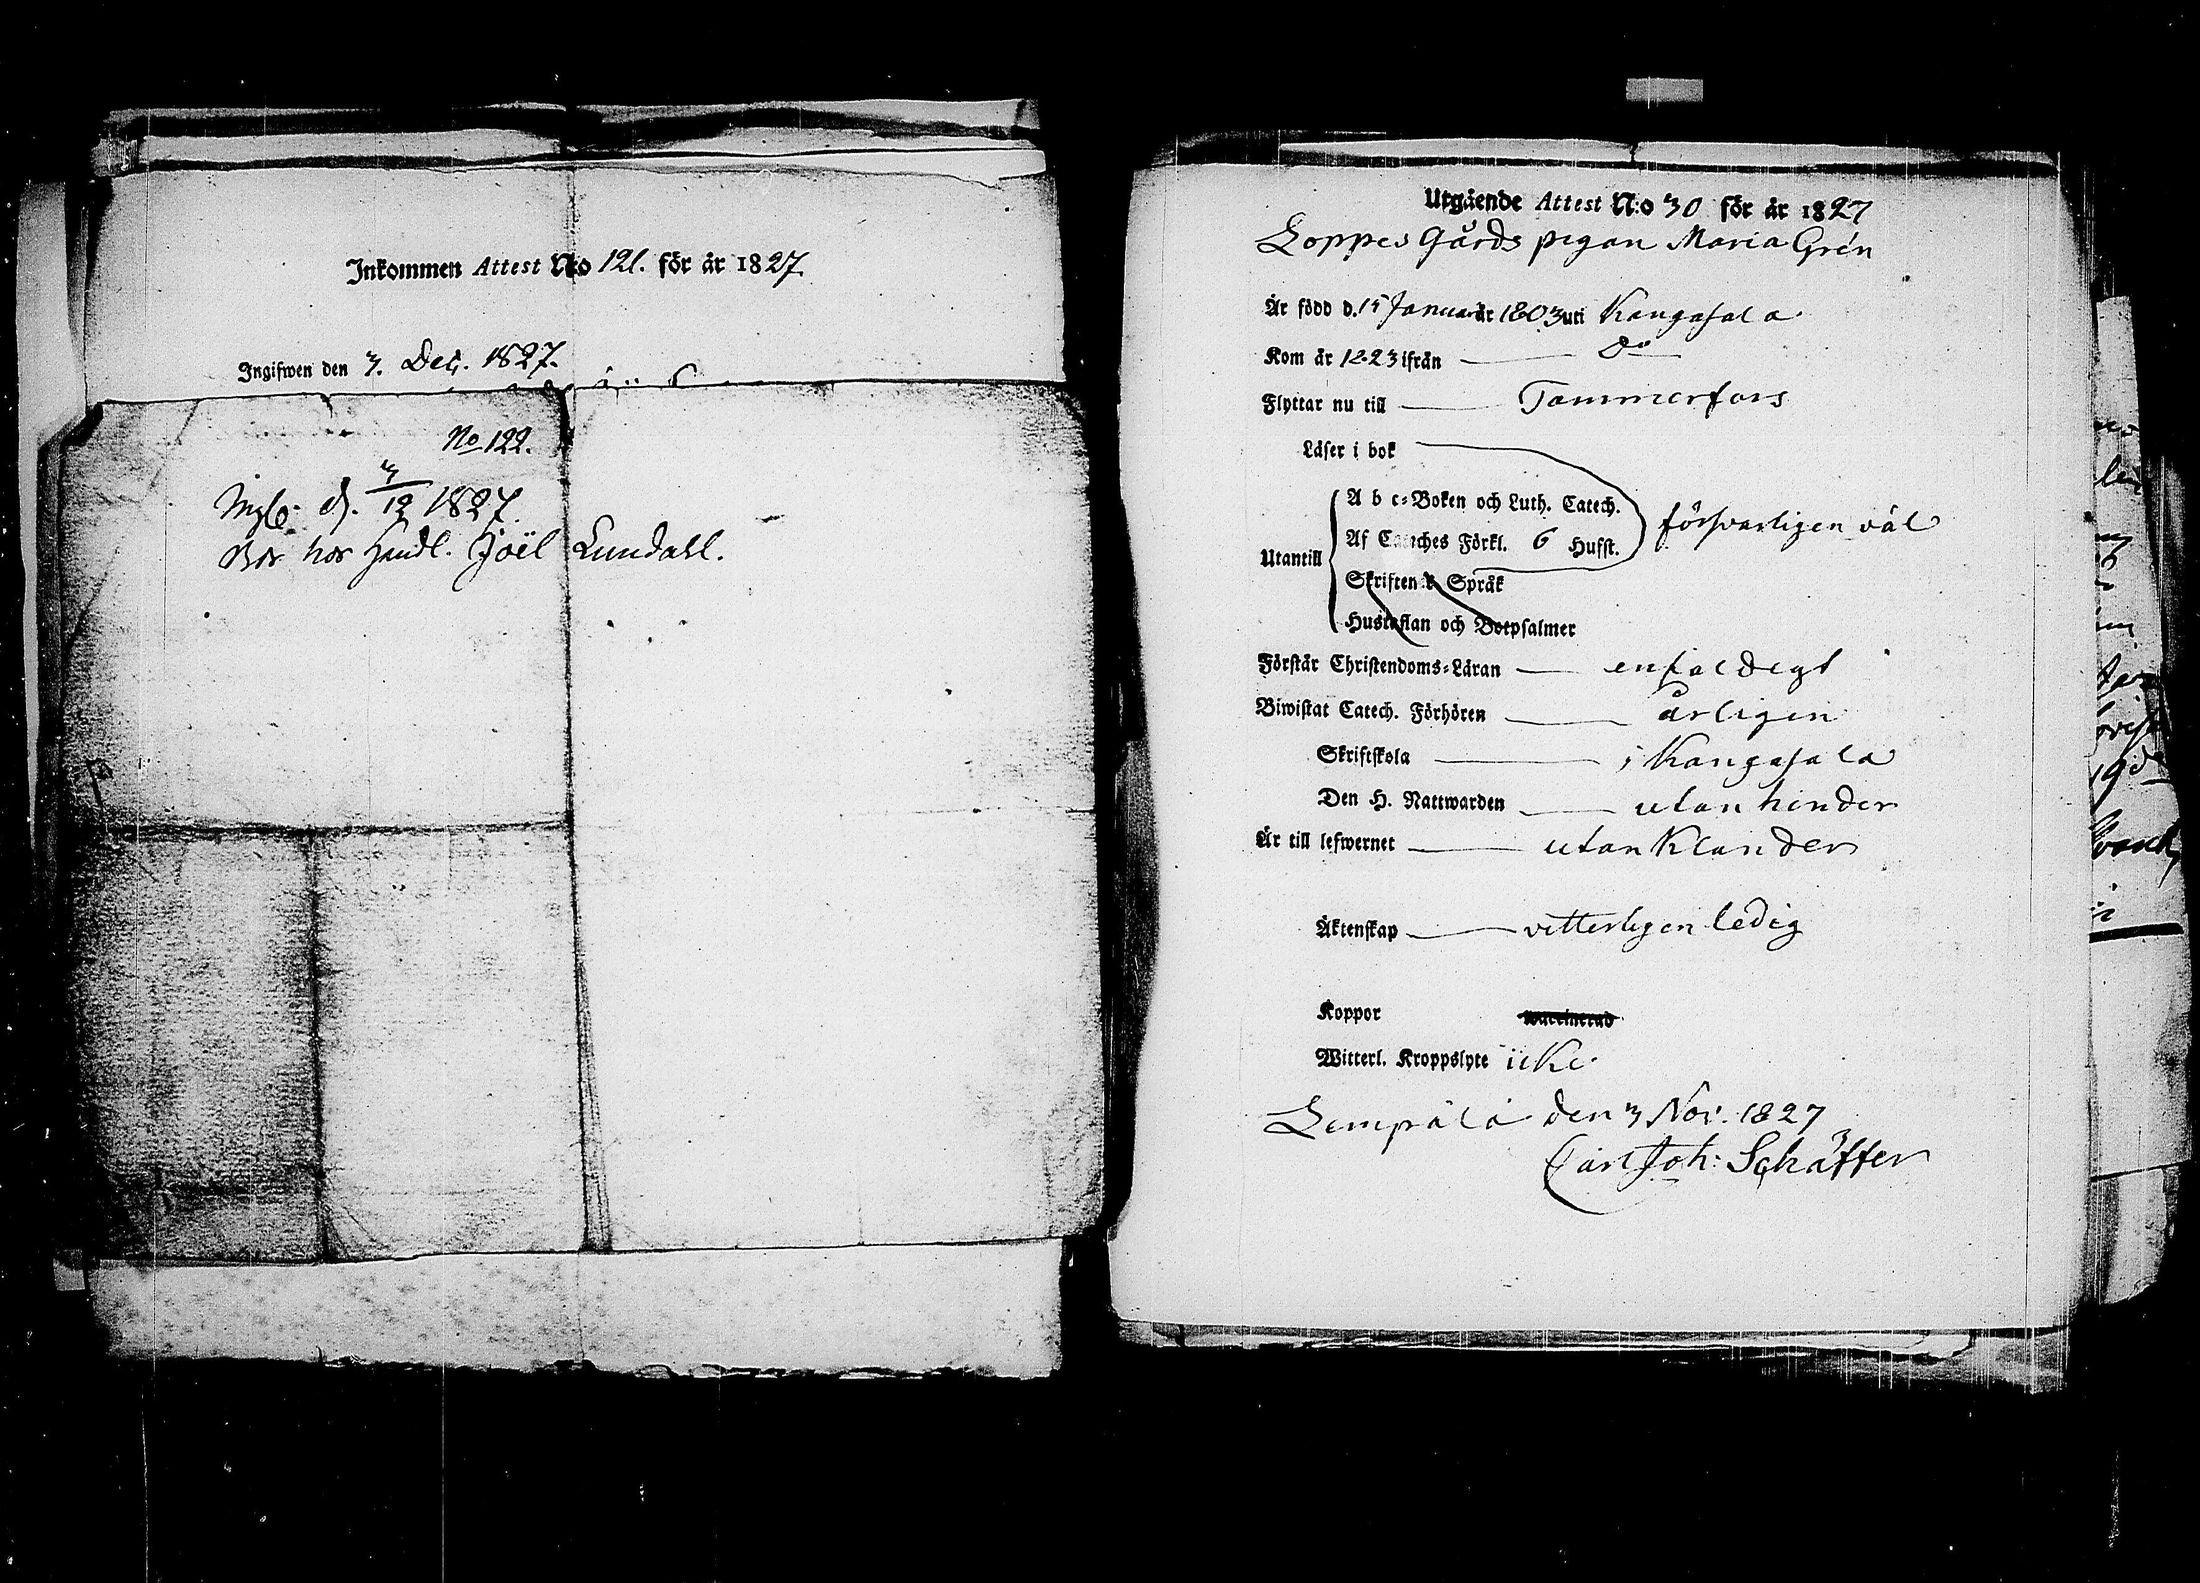 Inkommen Attest N:o 121. för år 1827.
Ingifwen den 3. Dec. 1827.
No 122.
d. 3/12 1827.
Bor hos Handl. Joël Lundahl.
Utgående Attest N:o 30 för år 1827
Loppes Gårds pigan Maria Grén
Är född d. 15 Januar år 1803 uti Kangasala
Kom år 1823 ifrån — Do
Flyttar nu till — Tammerfors
Läser i bok
A b c-Boken och Luth. Catech.
försvarligen väl
Af Catches Förkl. 6 Hufst.
Utantill
Skriftens Språk
Hustaflan och Botpsalmer
Förstår Christendoms-Läran — enfaldigt
Biwistat Catech. Förhören — årligen
Skriftskola — i Kangasala
Den H. Nattwarden — utan hinder
Är till lefwernet — utan Klander
Äktenskap — vitterligen ledig
Koppor waccinerad
Witterl. Kroppslyte icke
Lempälä den 3 Nov. 1827
Carl Joh: Schäffer